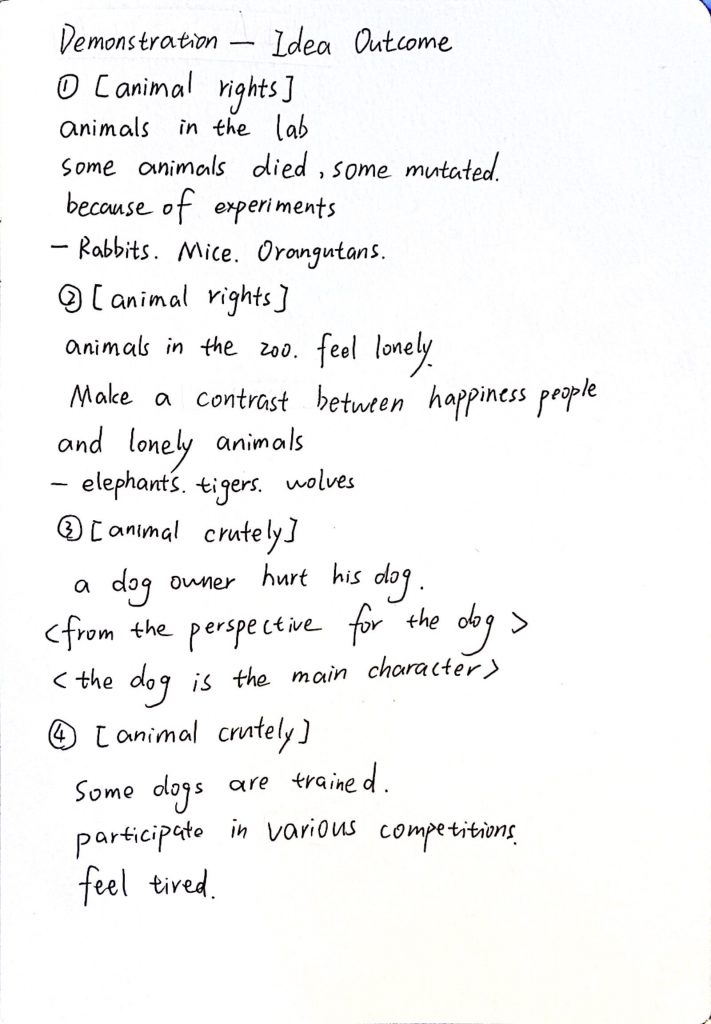 Demonstration — Idea Outcome
① [animal rights]
animals in the lab
some animals died, some mutated.
because of experiments
— Rabbits. Mice. Orangutans.
② [animal rights]
animals in the zoo. feel lonely.
Make a contrast between happiness people
and lonely animals
— elephants. tigers. wolves
③ [animal crutely]
a dog owner hurt his dog.
<from the perspective for the dog>
<the dog is the main character>
④ [animal crutely]
Some dogs are trained.
participate in various competitions.
feel tired.